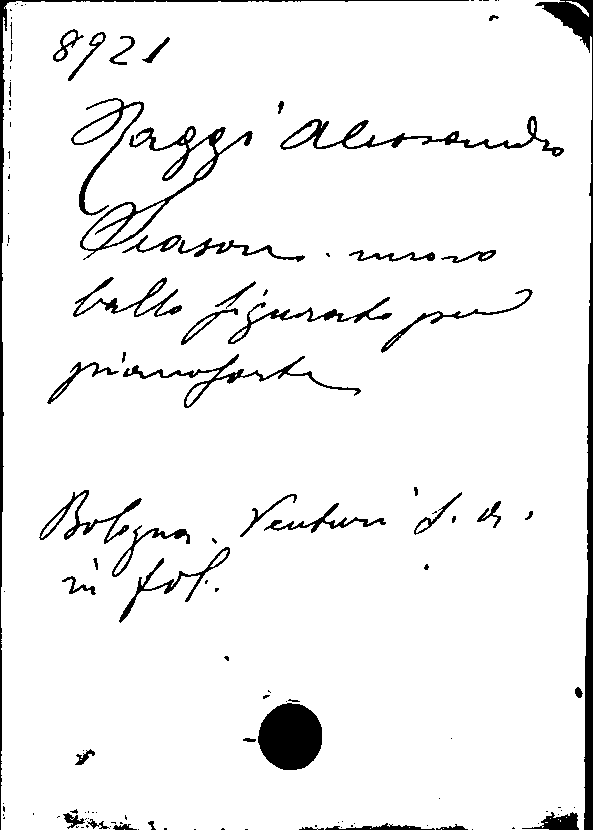 8921
Raggi Alessandro
Season. nuovo
ballo figurato per
pianoforte
Bologna. Venturi s. d.
in fol.